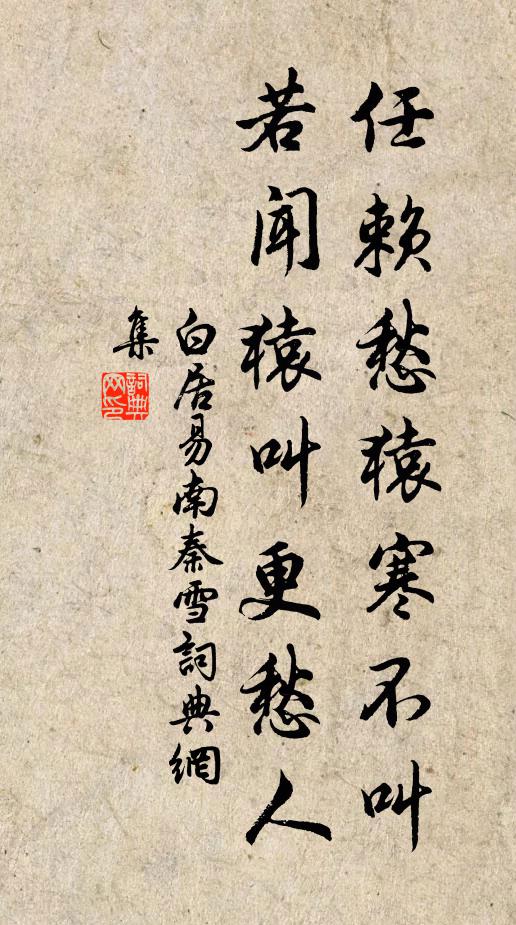 任賴愁猿寒不叫
若聞猿叫更愁人
白居易南秦雪詞典網
集
詞典
网印